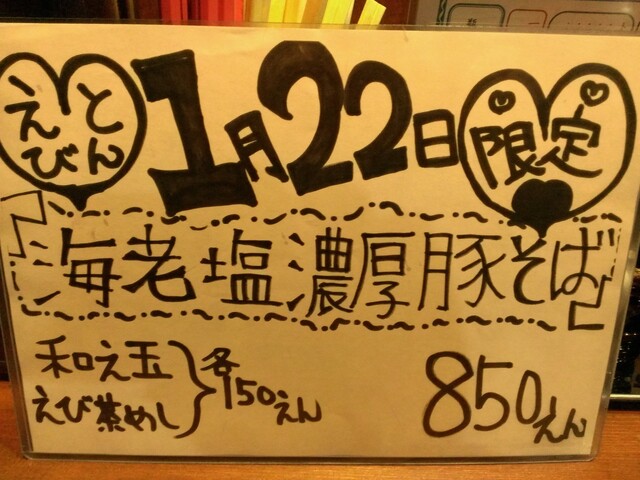 えび
とん
1月22日
限定
「海老塩濃厚豚そば」
和え玉
えび茶めし
各150えん
850えん